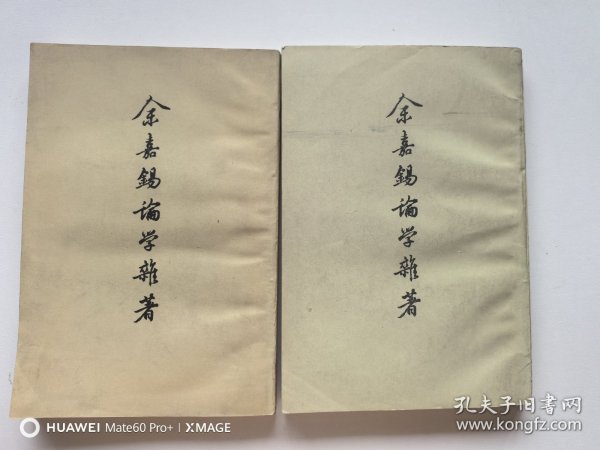 余嘉锡论学雜著
余嘉锡论学雜著
HUAWEI Mate60 Pro+ | XMAGE
孔夫子旧书网
www.kongfz.com